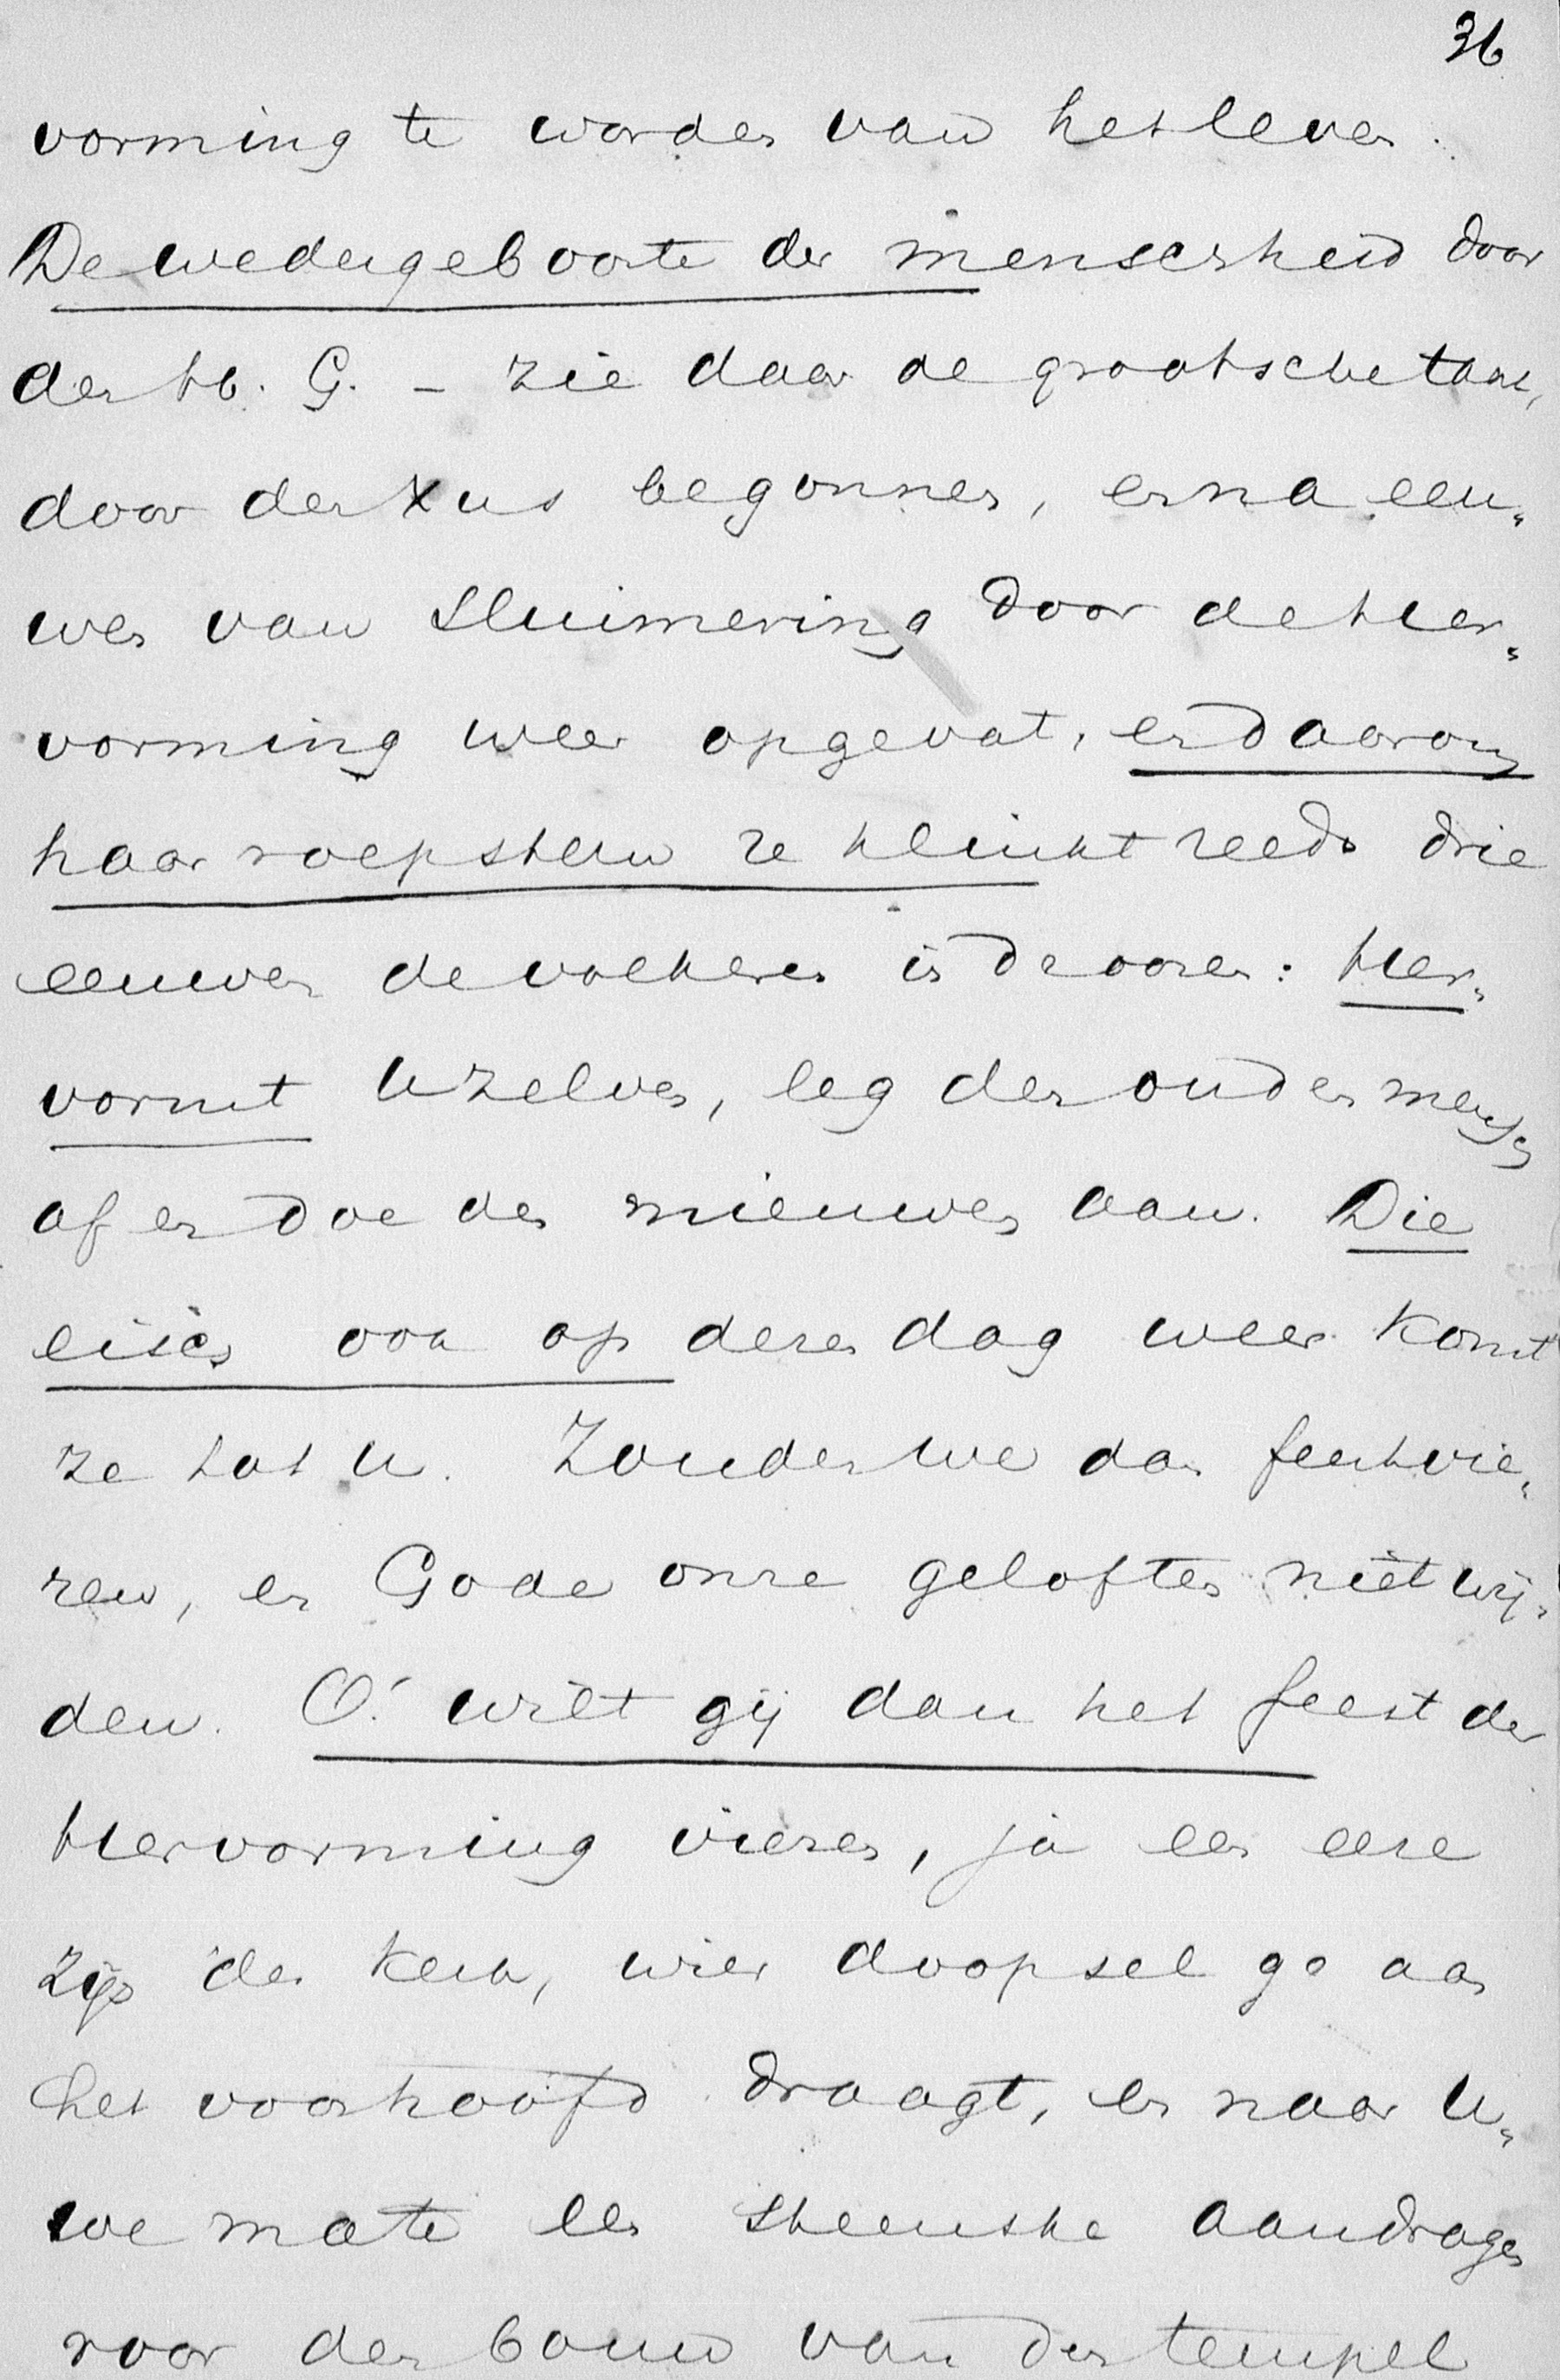 36
vorming te worden van het leven.
De wedergeboorte der menschheid door
den H. G. – zie daar de grootsche taak,
door den Xus begonnen, en na eeu„
wen van sluimering door de Her„
vorming weer opgevat, en daarom
haar roepstem ze klinkt reeds drie
eeuwen de volkeren in de ooren: Her„
vormt Uzelven, leg den ouden mensch
af en doe den nieuwen aan. Die
eisch ook op dezen dag weer komt
ze tot U. Zouden we dan feestvie„
ren, en Gode onze geloften niet wij„
den. O! wilt gij dan het feest der
Hervorming vieren, ja een eere
zijn der kerk, wier doopsel ge aan
het voorhoofd draagt, en naar U„
we mate een steenske aandragen
voor den bouw van den tempel